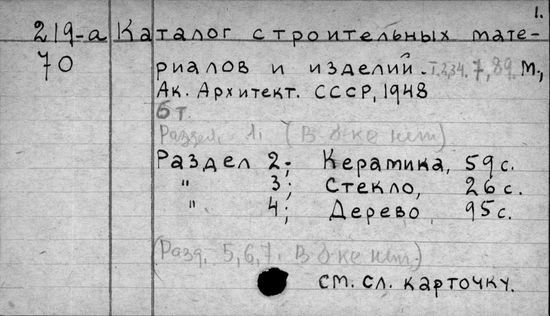 1.
219-а Каталог строительных мате-
70 риалов и изделий. 1,2,3,4. 7, 8, 9. М.,
Ак. Архитект. СССР, 1948
6 т.
Раздел. 1. (В б-ке нет)
Раздел 2; Керамика, 59 с.
" 3; Стекло, 26 с.
" 4; Дерево, 95 с.
(Разд. 5, 6, 7. В б-ке нет.)
см. сл. карточку.